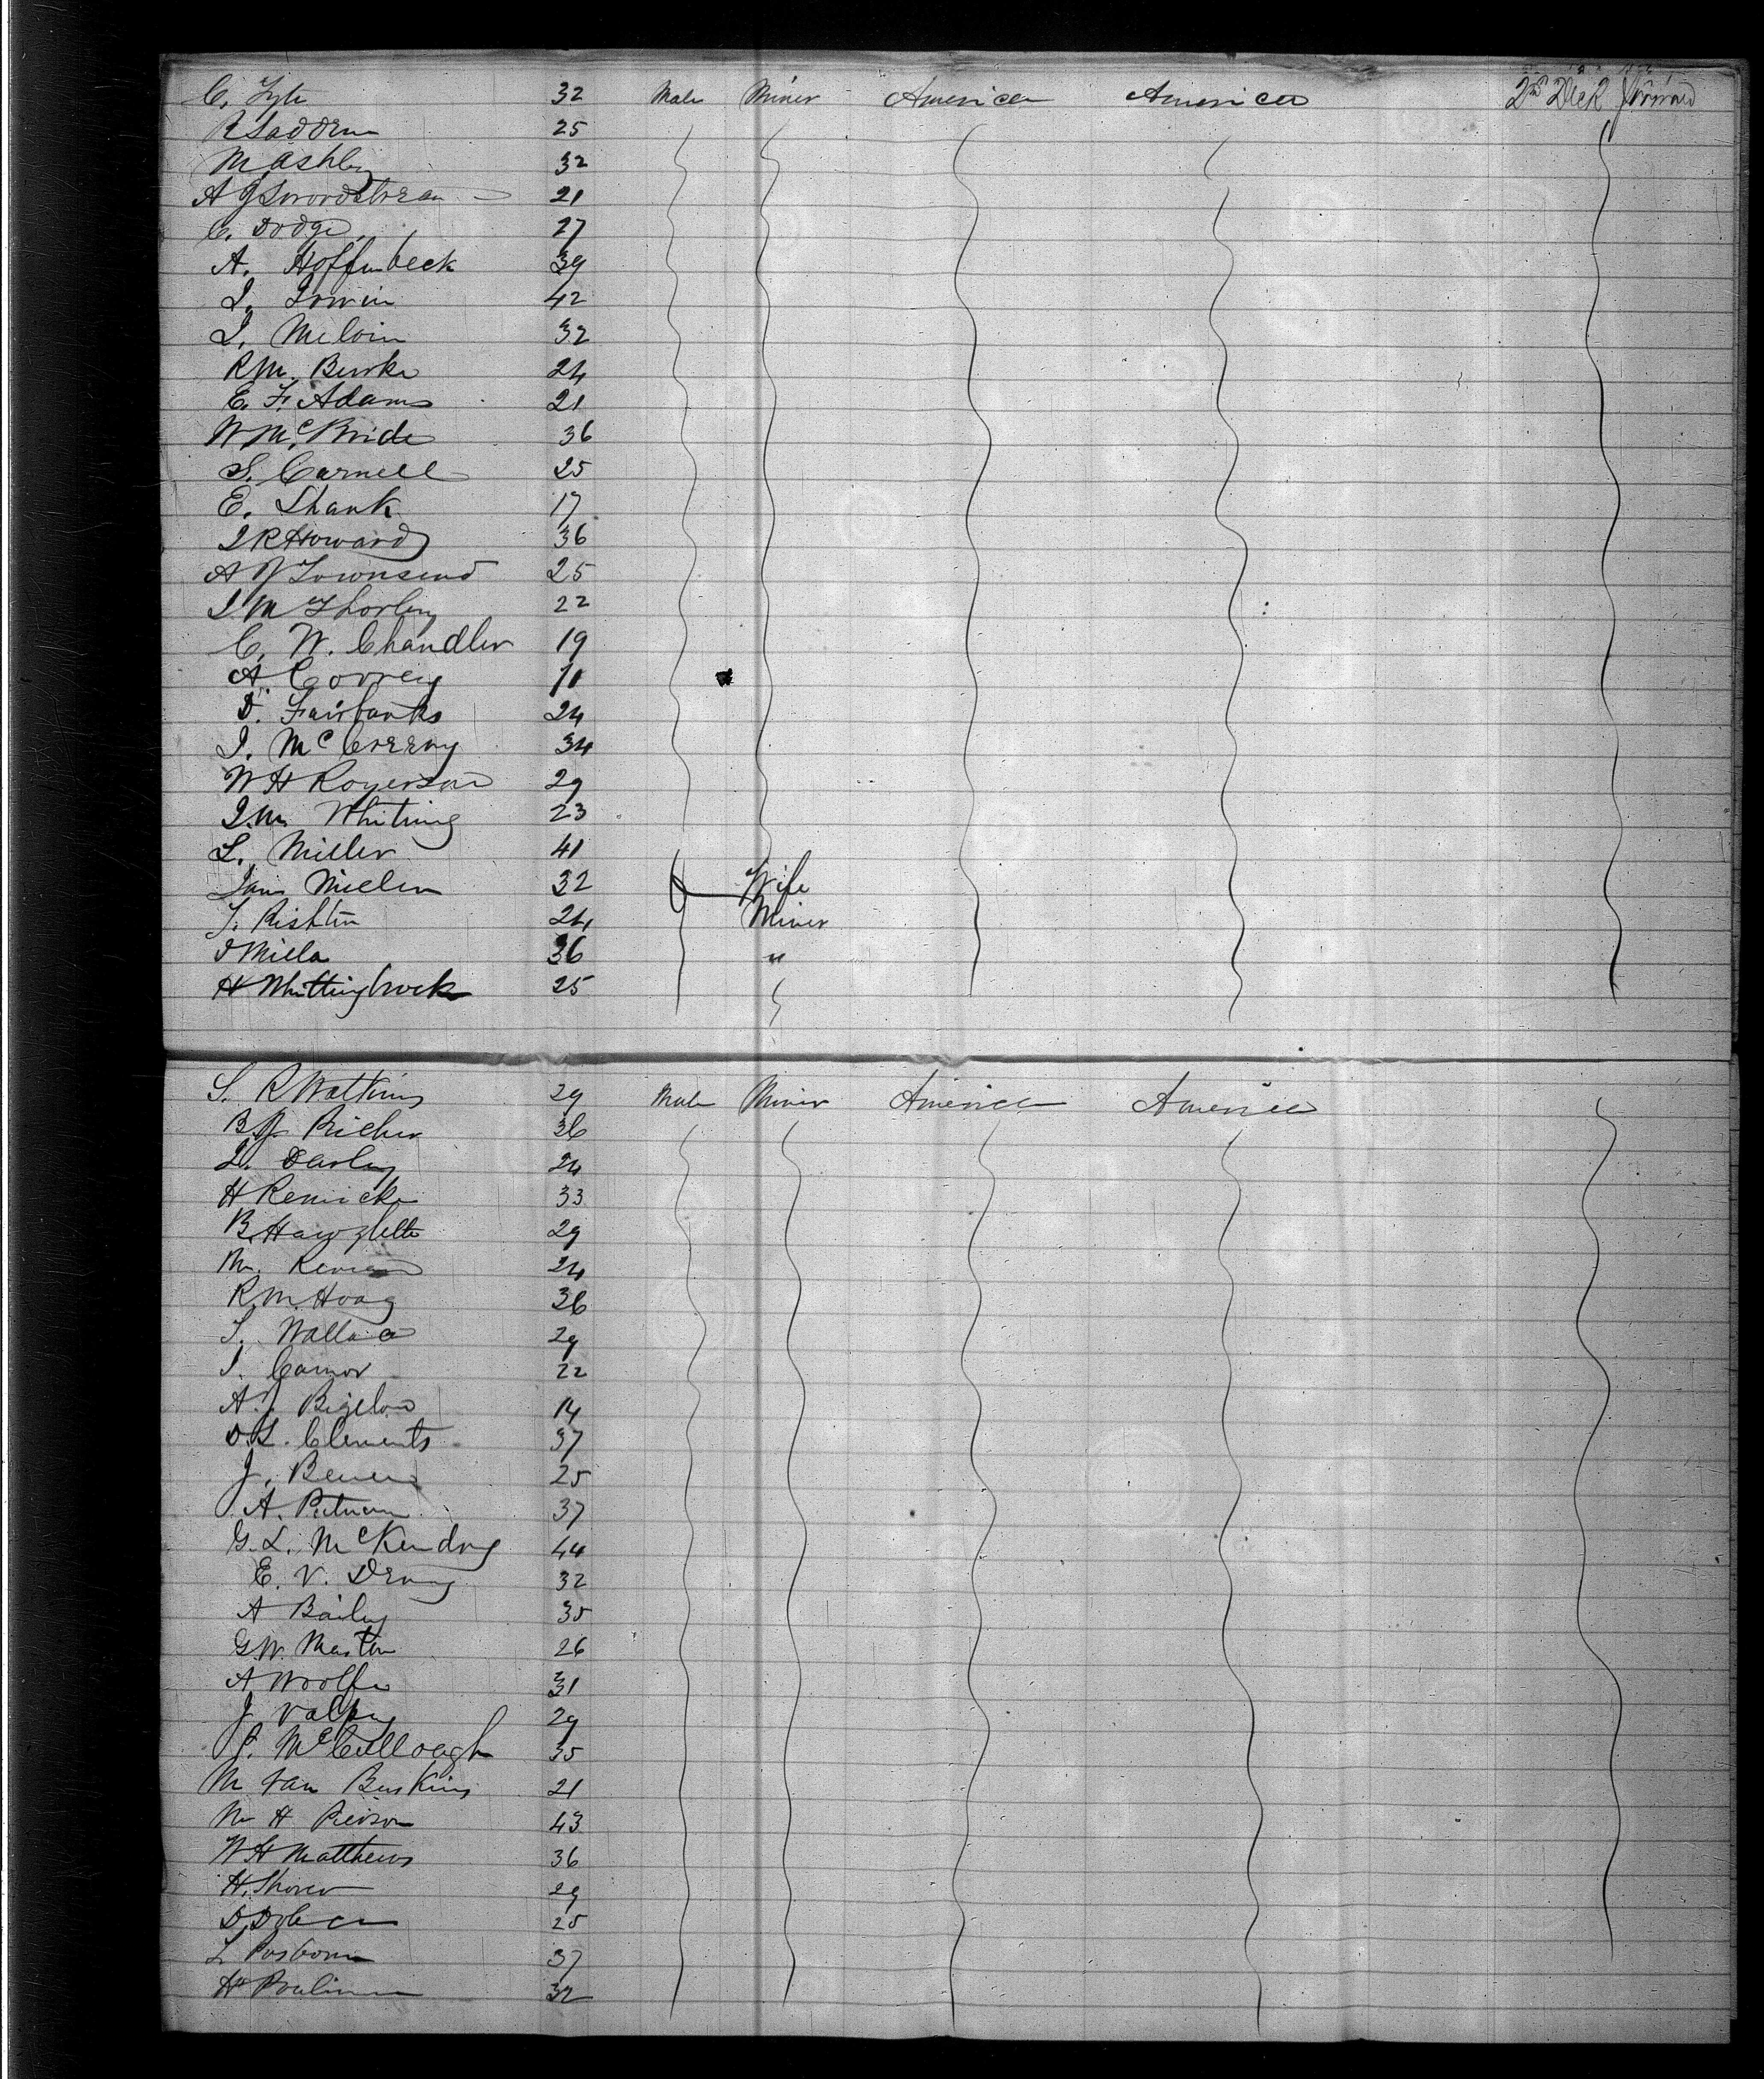 C. Lyle 32 Male Miner America America 2nd Deck Forward
R Ladden 25
M Ashley 32
A J 21
C. Dodge 27
A. Hoffenbeck 39
I. Irwin 42
I. Melvin 32
R M. Burke 24
E. F. Adams 21
W McBride 36
S. Carnell 25
E. Shank 17
I R Howard 36
A J Townsend 25
I M Thorley 22
C. W. Chandler 19
A Correy 71
D. Fairbanks 24
I. McCreery 34
W H Rogerson 29
I. M. Whiting 23
L. Miller 41
Miller 32 Wife
T. Rishton 24 Miner
I Milla 36 "
H Whittingbrock 25
S. R Watkins 29 Male Miner America America
B. J. Richer 36
L. Darley 24
H Renicke 33
B. 29
M. 24
R. M. Hoag 36
T. Wallace 29
I. Camor 22
A. J. Bigelow 14
D. L. Clements 37
J. 25
A. Putnam 37
G. L. McKendry 44
E. V. Drury 32
A Baily 35
G. W. Maston 26
A Woolfe 31
J Valpy 29
J. McCullough 35
M Van Buskins 21
M H Pierson 43
W H Matthews 36
H. Shorer 29
D 25
L 37
H 32